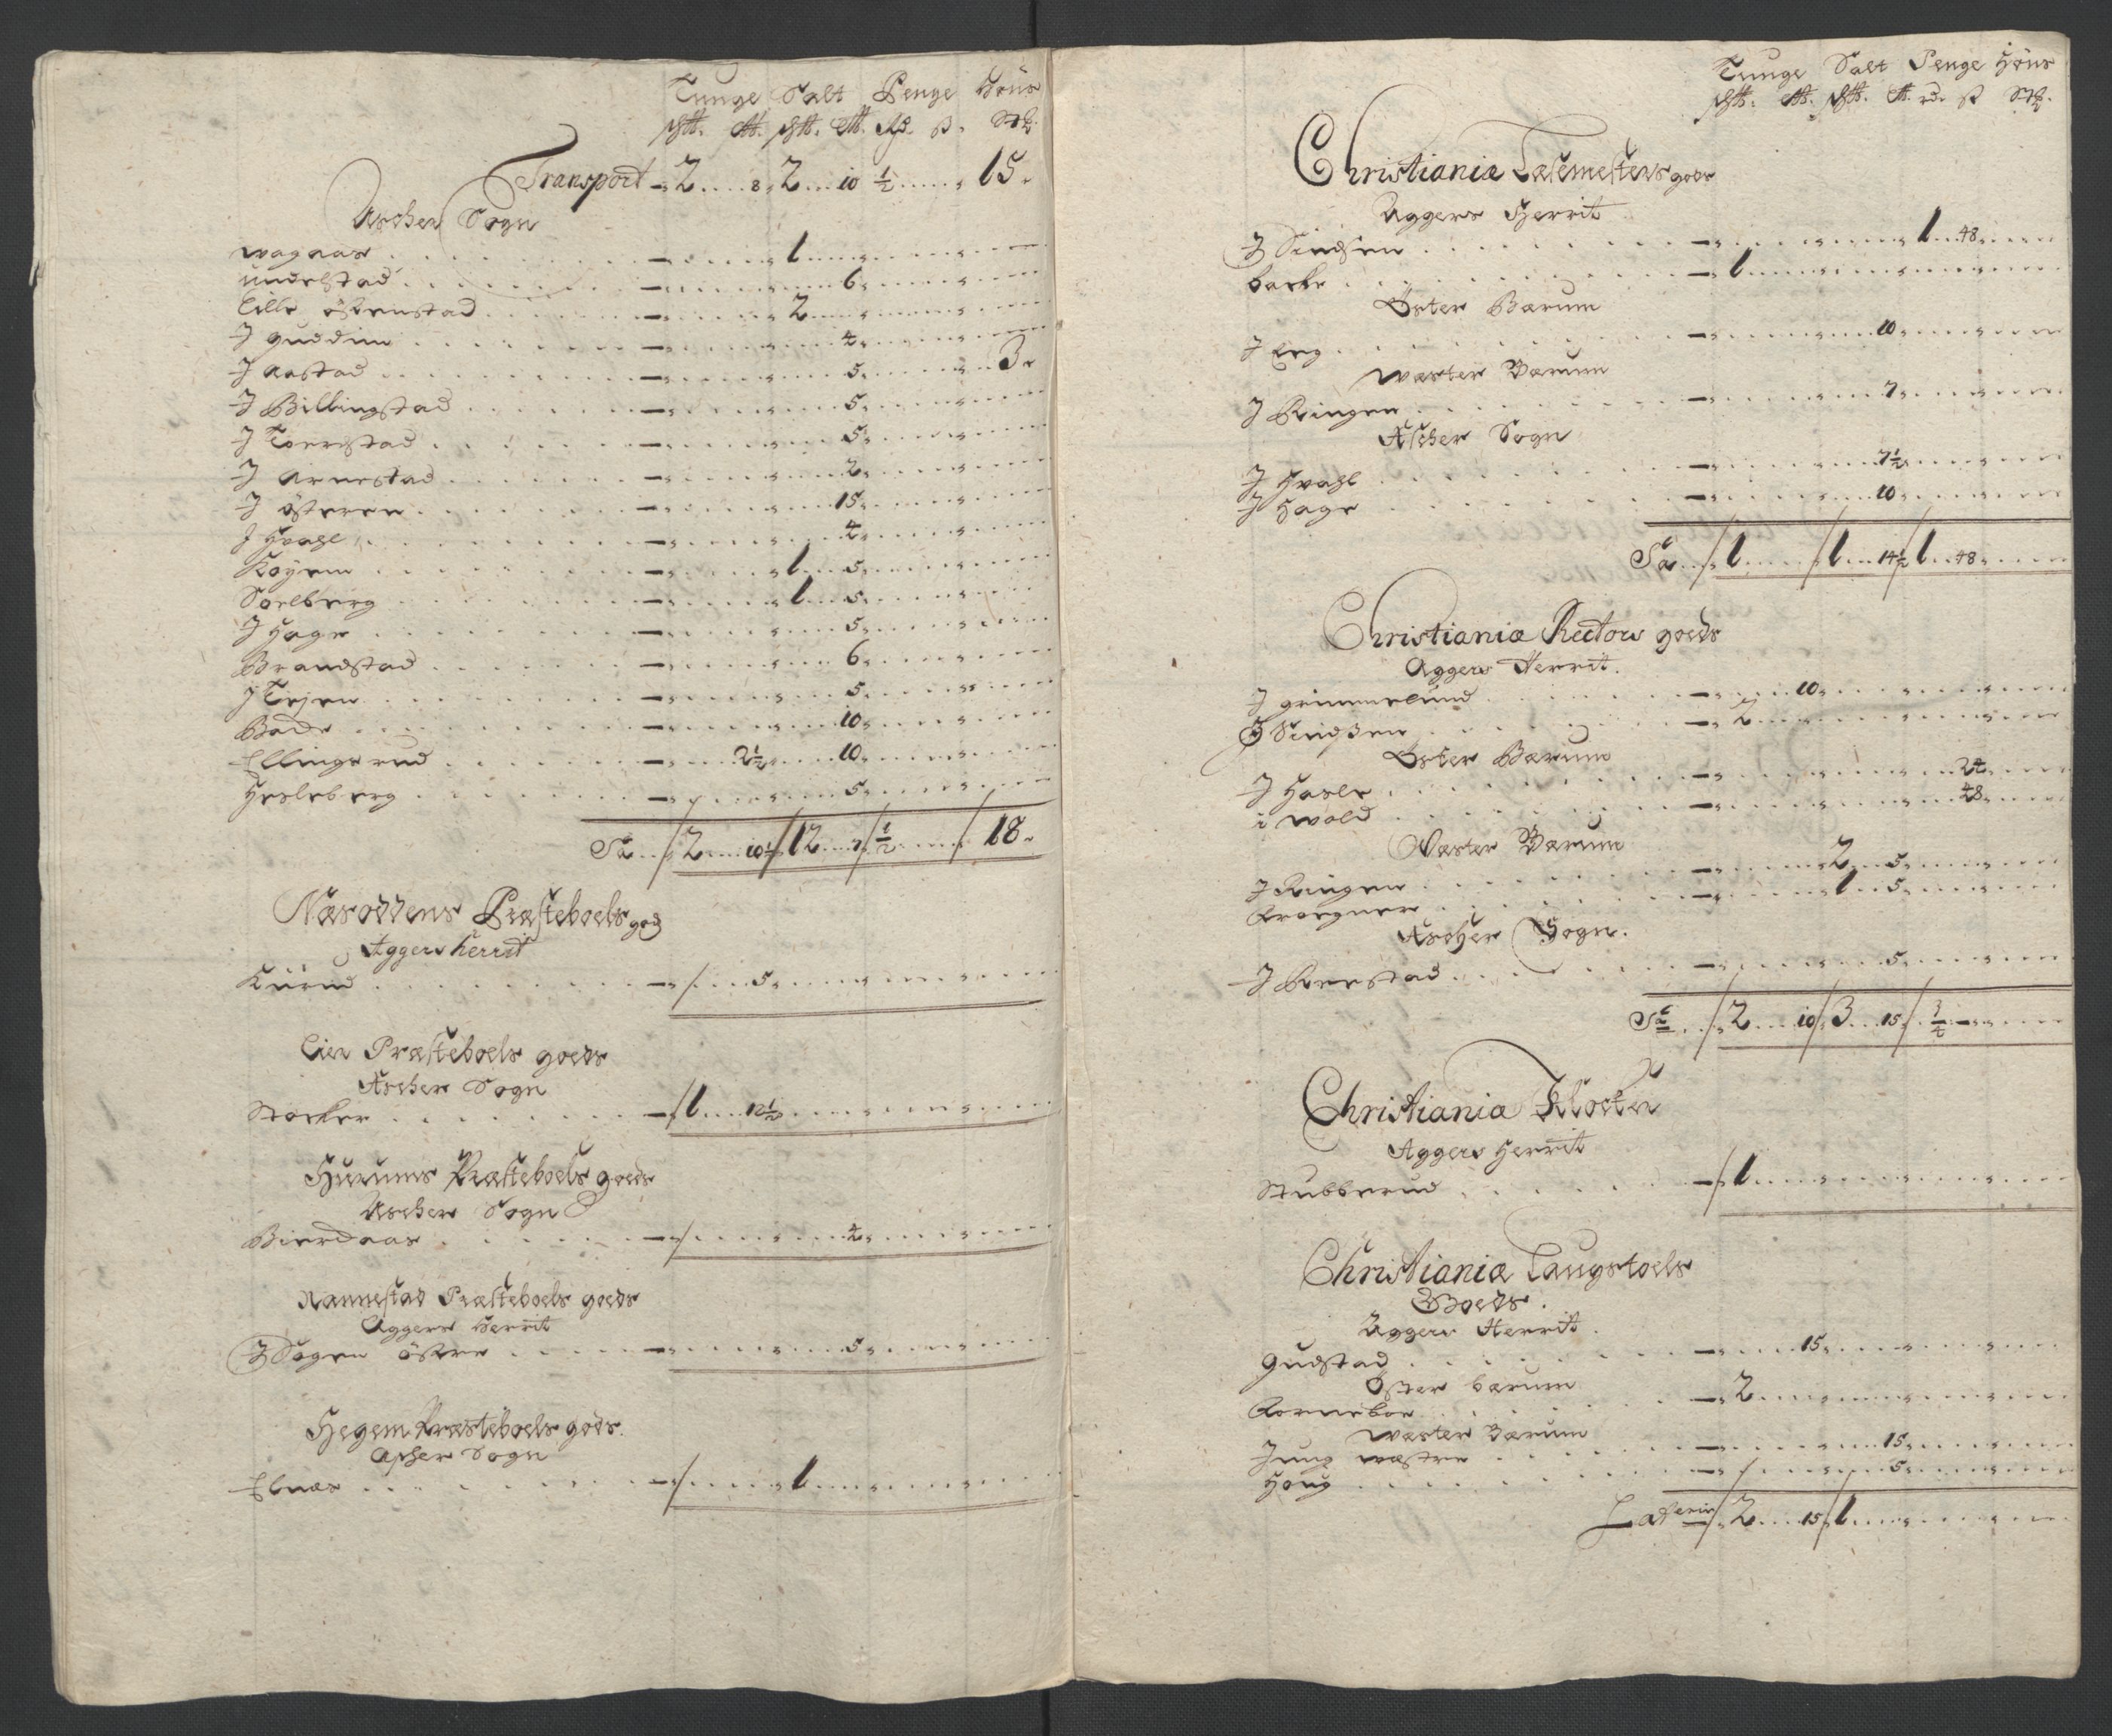 Tunge Salt Penge Höns
s℔. ℔. s℔. ℔. Rd. ß. Stk.
Transport 2 8 2 10 ½ 15
Ascher Sogn
Wagaas 1
Undelstad 6
Lille östenstad 2
J guddim 4
J Aastad 5 3
J Billingstad 5
J Toerstad 5
J Arnestad 2
J Østeren 15
J Hvahl 4
Köyem 1 5
Soelberg 1 5
J Hage 5
Brandstad 6
J Tejen 5
Bade 10
Ellingsrud 2½ 10
Hesleberg 5
Sa 2 10½ 12 7 ½ 18
Næsoddens Præsteboels god
Aggers Herrit
Kiirud 5
Lier Præsteboels goeds
Ascher Sogn
Stocker 1 12½
Hurums Præsteboels goeds
Ascher Sogn
Bierdaas 4
Rannestad Præsteboels goeds
Aggers Herrit
J Sogen östre 5
Hegem Præsteboels gods.
Ascher Sogn
Elnæs 1
Tunge Salt Penge Höns
s℔. ℔. s℔. ℔. rd. ß Stk.
Christianiæ Læsemesters gods
Aggers Herrit
J Sindsen 1 48
backe 1
Öster Bærum
J Eeg 10
Wæster Bærum
J Ringen 7
Ascher Sogn
J Hvahl 7½
J Hage 10
Sa 1 1 14½ 1 48
Christianiæ Rectors goeds
Aggers Herrit.
J grimmelund 10
J Sindsen 2
Öster Bærum
J Hasle 24
i Wold 48
Wæster Bærum
J Ringen 2 5
Froegner 1 5
Ascher Sogn.
J Berestad 5
Sa 2 10 3 15 ¾
Christiania Kloster
Aggers Herrit
Stubberud 1
Christianiæ Laugstoels
Goeds.
Aggers Herrit.
Gudstad 15
Öster bærum
Forneboe 2
Wæster Bærum
Jung wæstre 15
Houg 5
Laterir 2 15 1